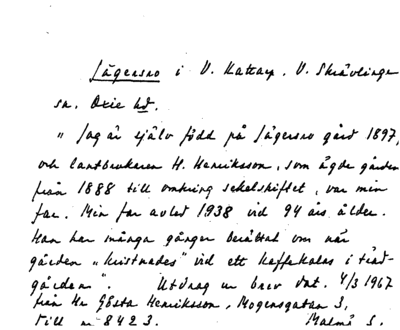 Jägersro i V. Kattarp, V. Skrävlinge
sn. Oxie hd.
"Jag är själv född på Jägersro gård 1897,
och lantbrukaren H. Henriksson, som ägde gården
från 1888 till omkring sekelskiftet, var min
far. Min far avled 1938 vid 94 års ålder.
Han har många gånger berättat om när
gården "kristnades" vid ett kaffekalas i träd-
gården". Utdrag ur brev dat. 4/3 1967
från Hr Gösta Henriksson, Mogensgatan 3,
till nr 8423. Malmö S.